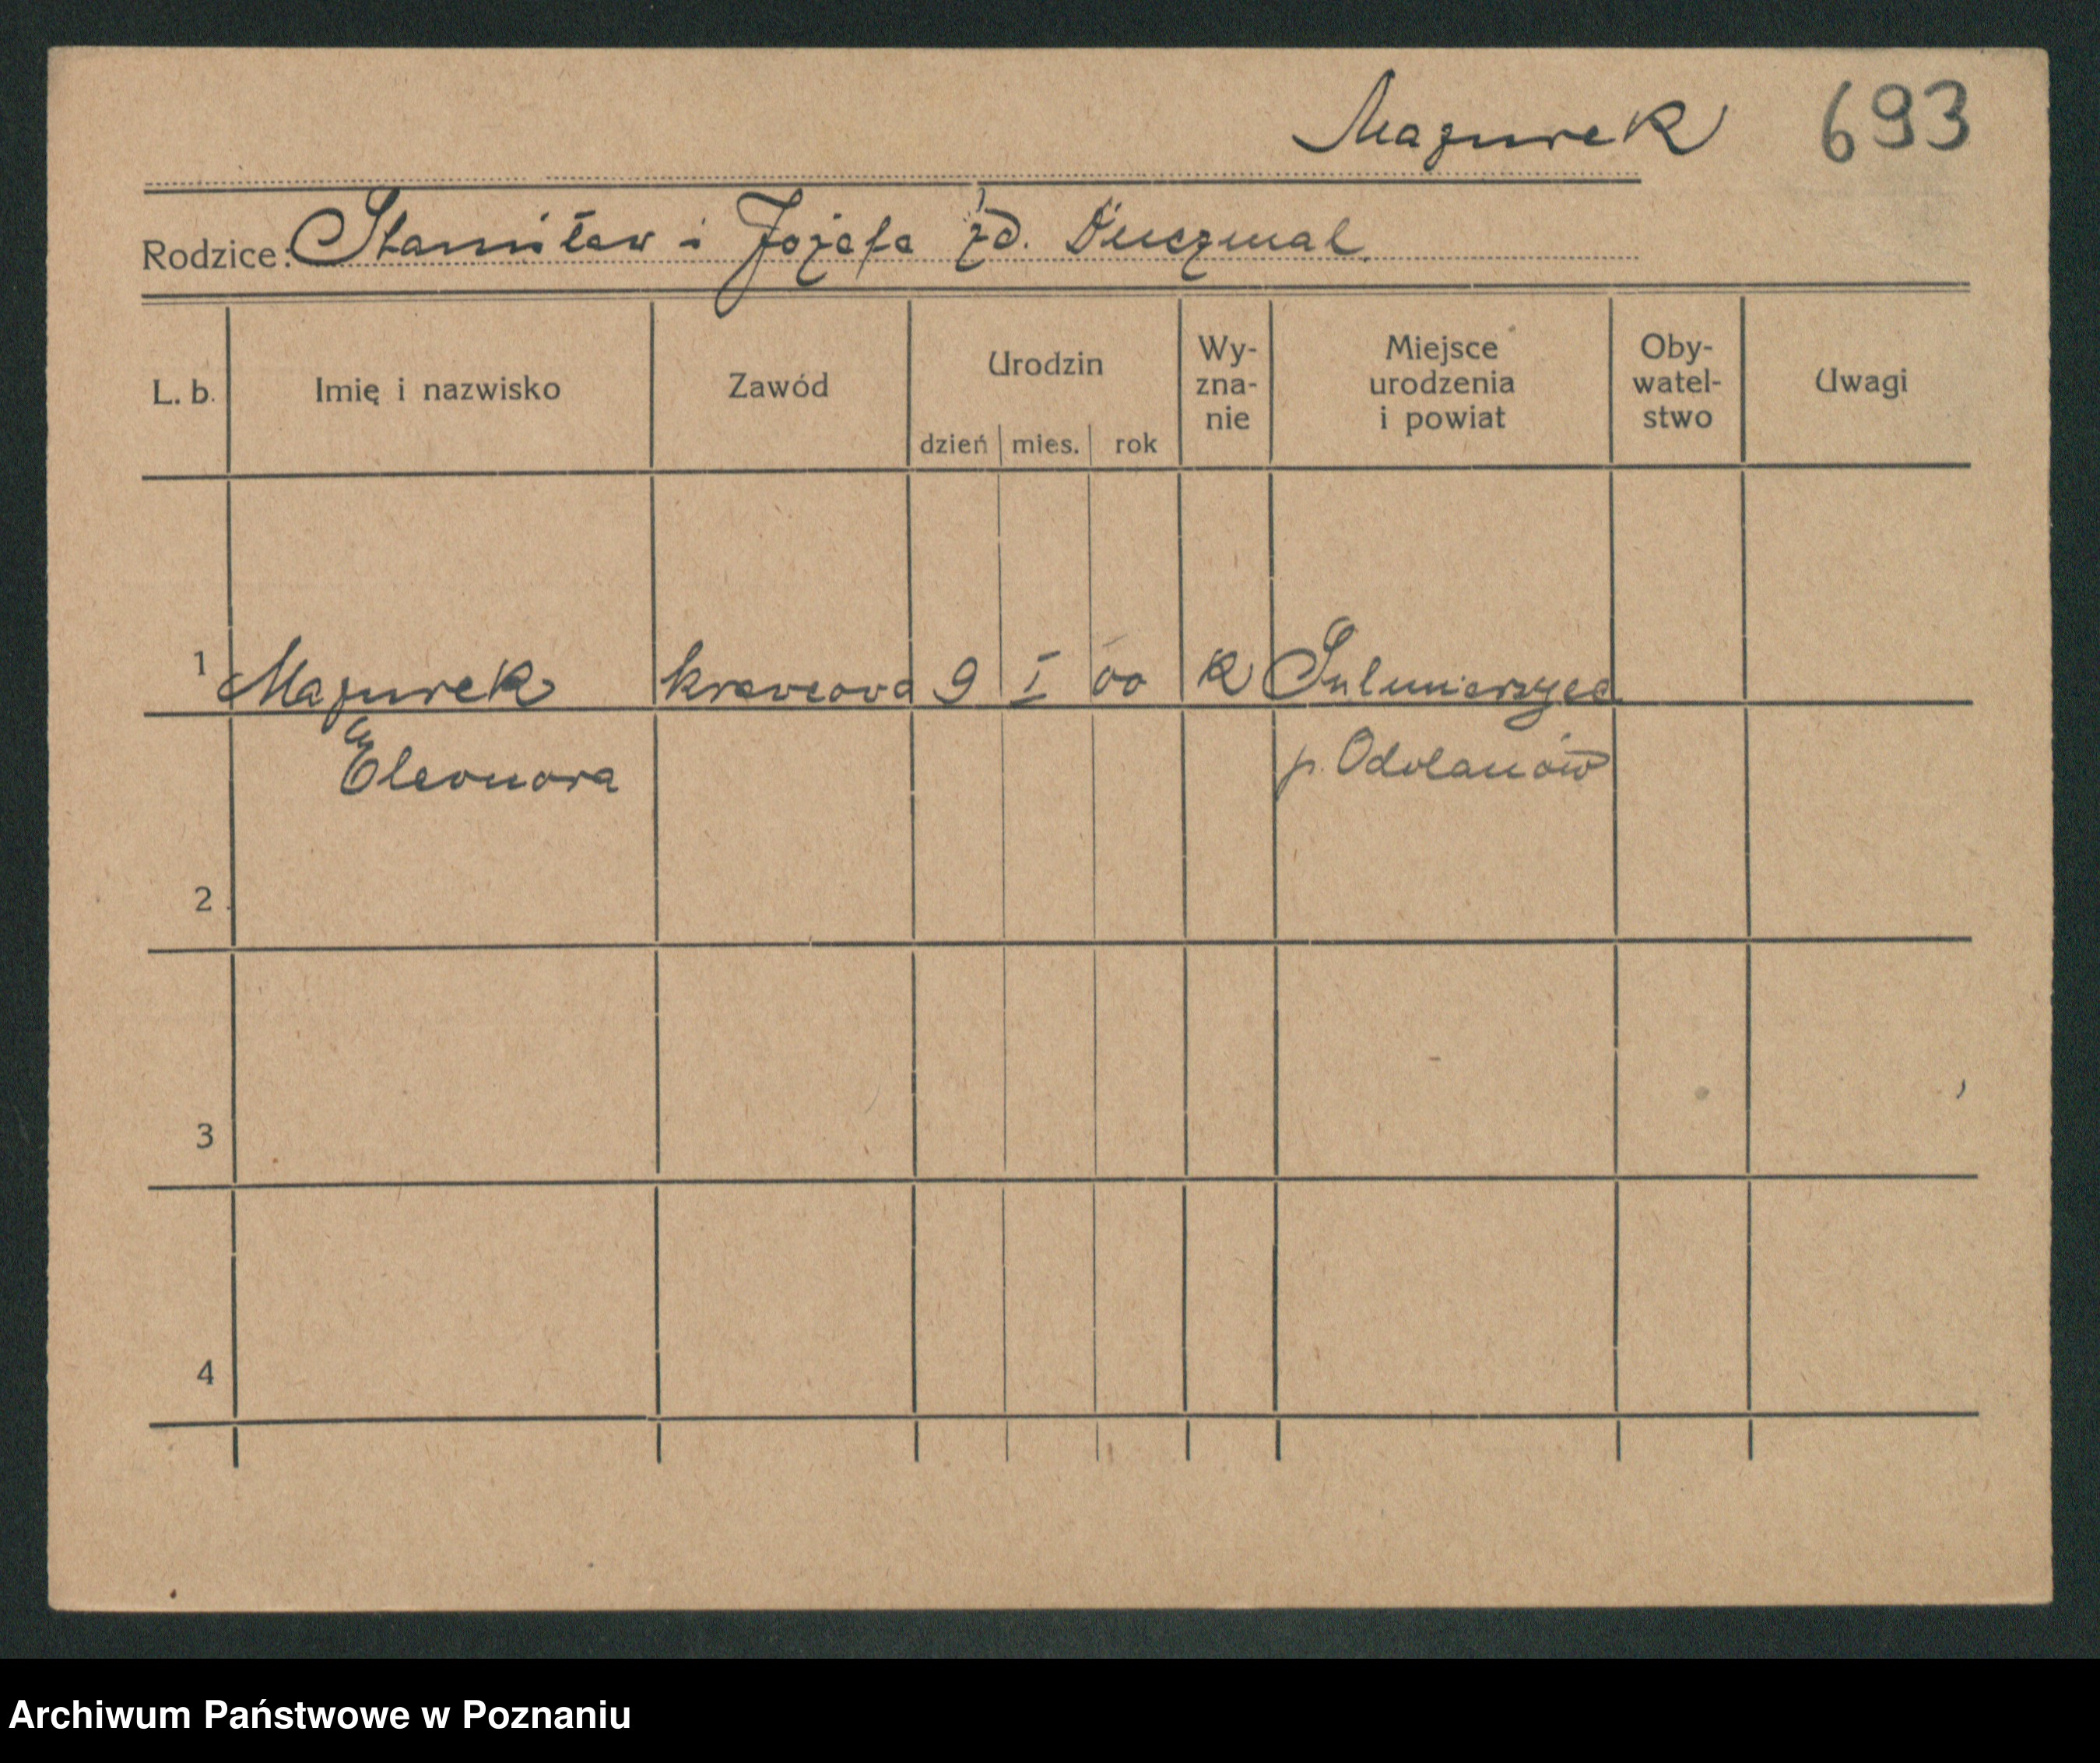 Mazurek 693
Rodzice: Stanisław i Józefa zd. Duczmal
L. b. Imię i nazwisko Zawód Urodzin dzień mies. rok Wy-zna-nie Miejsce urodzenia i powiat Oby-watel-stwo Uwagi
1 Mazurek krawcowa 9 I 00 K Sulmierzyce
Eleonora p. Odolanów
2
3
4
Archiwum Państwowe w Poznaniu